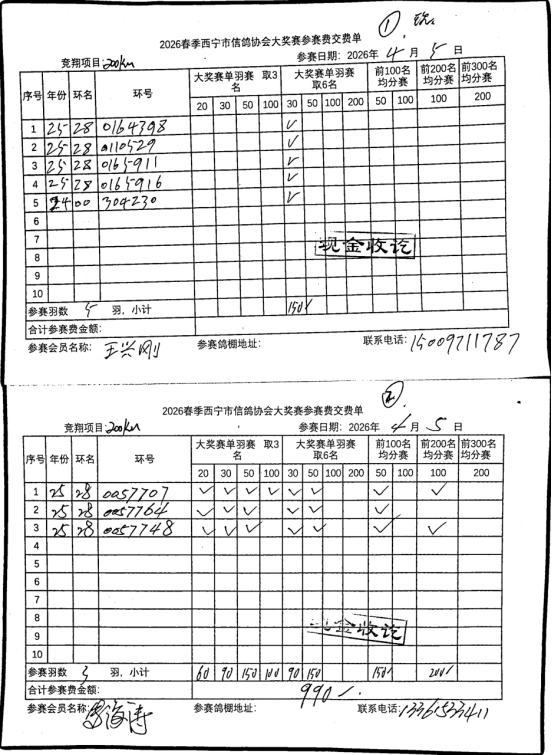 ① 现
2026春季西宁市信鸽协会大奖赛参赛费交费单
竞翔项目:200km 参赛日期: 2026年 4 月 5 日
序号 年份 环名 环号 大奖赛单羽赛 取3名 大奖赛单羽赛 取6名 前100名均分赛 前200名均分赛 前300名均分赛
20 30 50 100 30 50 100 200 50 100 100 200
1 25 28 0164398 ✓
2 25 28 0110529 ✓
3 25 28 0165911 ✓
4 25 28 0165916 ✓
5 24 00 304230 ✓
6
7
8
9
10
现金收讫
参赛羽数 5 羽, 小计 150
合计参赛费金额:
参赛会员名称: 王兴刚 参赛鸽棚地址: 联系电话: 15009711787
②
2026春季西宁市信鸽协会大奖赛参赛费交费单
竞翔项目:200km 参赛日期: 2026年 4 月 5 日
序号 年份 环名 环号 大奖赛单羽赛 取3名 大奖赛单羽赛 取6名 前100名均分赛 前200名均分赛 前300名均分赛
20 30 50 100 30 50 100 200 50 100 100 200
1 25 28 0057707 ✓ ✓ ✓ ✓ ✓ ✓ ✓ ✓
2 25 28 0057764 ✓ ✓ ✓ ✓ ✓ ✓
3 25 28 0057748 ✓ ✓ ✓ ✓ ✓ ✓ ✓
4
5
6
7
8
9
10
现金收讫
参赛羽数 3 羽, 小计 60 90 150 100 90 150 150 200
合计参赛费金额: 990
参赛会员名称: 参赛鸽棚地址: 联系电话: 13361533411